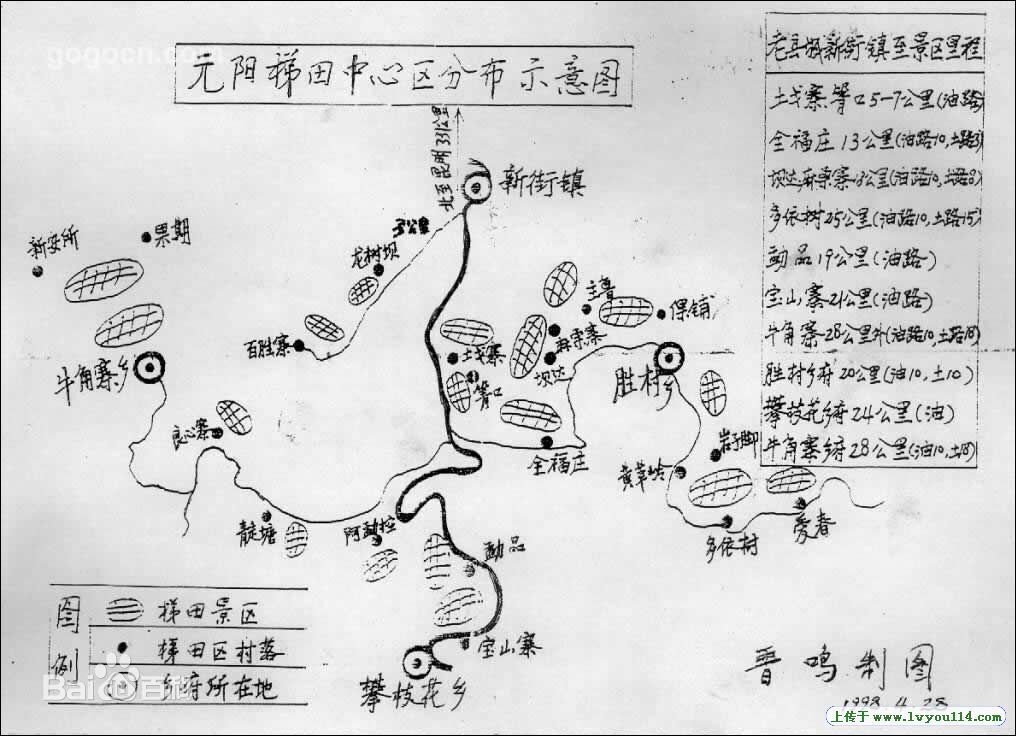 gogocn.com
元阳梯田中心区分布示意图
老县城新街镇至景区里程
土戈寨箐口5-7公里(油路)
全福庄13公里(油路10,土路3)
坝达.麻栗寨18公里(油路10,土路8)
多依树25公里(油路10,土路15)
勐品19公里(油路)
宝山寨21公里(油路)
牛角寨28公里外(油路10,土路18)
胜村乡府20公里(油10,土10)
攀枝花乡府24公里(油)
牛角寨乡府28公里(油10,土18)
北至昆明331公里
新街镇
新安所
果期
龙树坝
百胜寨
牛角寨乡
良心寨
土戈寨
箐口
主鲁
保铺
麻栗寨
坝达
胜村乡
全福庄
岩子脚
黄草岭
多依树
爱春
阿勐控
勐品
宝山寨
攀枝花乡
图例
梯田景区
梯田区村落
乡府所在地
Baidu百科
晋鸣制图
1998.4.28
上传于 www.lvyou114.com